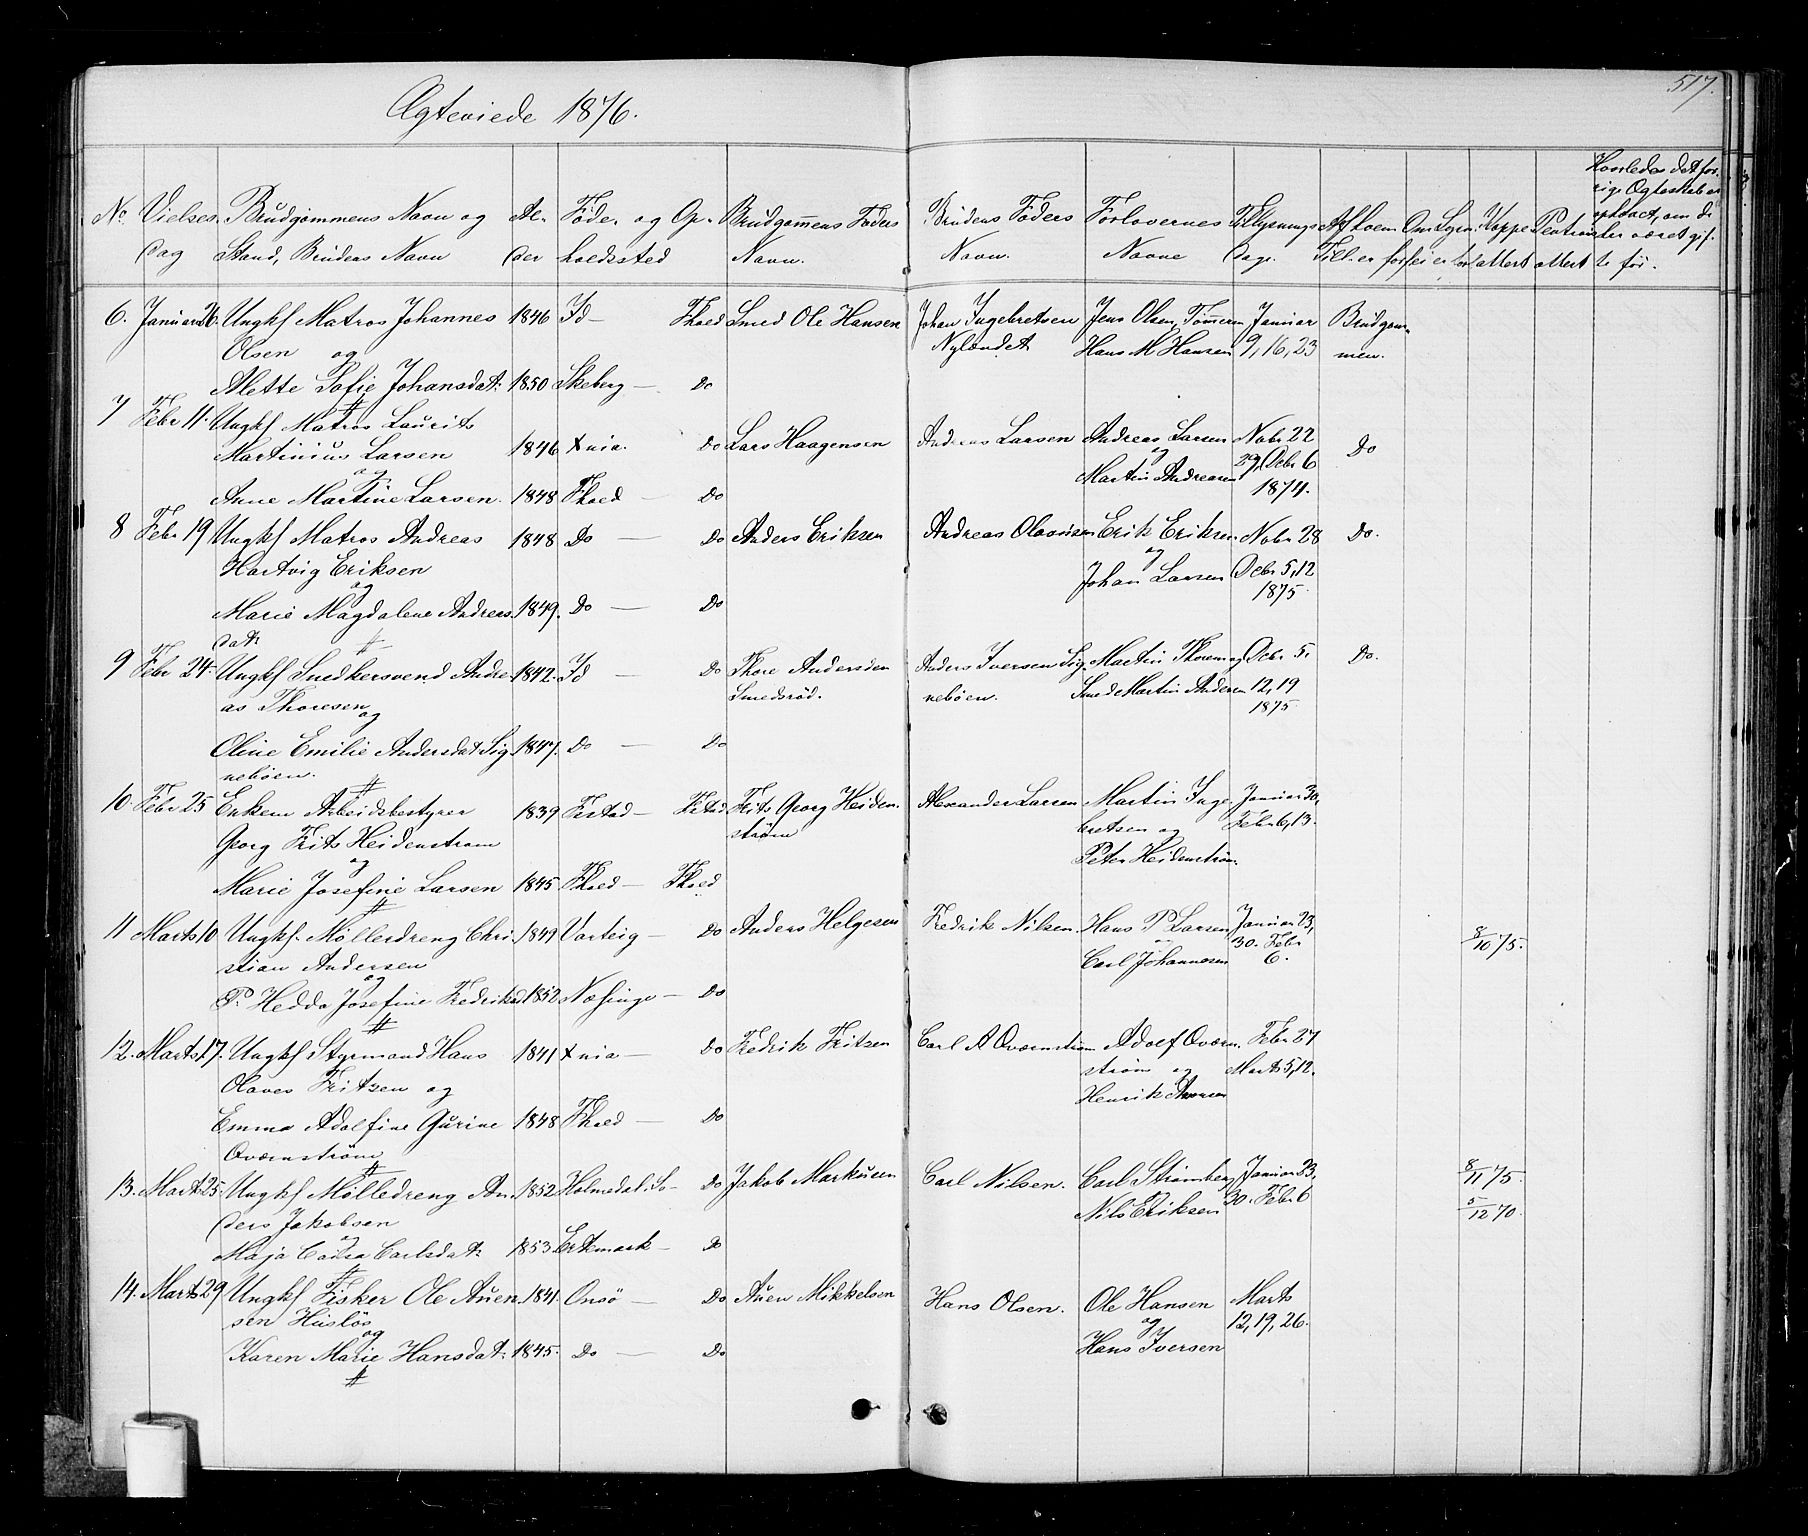 Ægteviede 1876.
517.
No. Vielses dag
Brudgommens Navn og Stand, Brudens Navn
Alder
Føde- og Opholdssted
Brudgommens Faders Navn.
Brudens Faders Navn.
Forlovernes Navne
Tillysnings Dage.
Af hvem Till. er
Koppe attest
Hvorledes det for-
rige Ægteskab er
ophævet, om de
har været gif-
te før.
6. Januar 26. Ungkf Matros Johannes 1846 Id — Fhald Smed Ole Hansen Johan Ingebretsen Jens Olsen, Januar Brudgom-
Olsen og Nylændet Hans M Hansen 9, 16, 23 men.
Alette Sofie Johansdat. 1850 Skeberg — Do
7 Febr 11. Ungkf Matros Laurits
Martinius Larsen 1846 Xnia. Do Lars Haagensen Andreas Larsen Andreas Larsen Nobr 22 Do
og og 29, Decbr 6
Anne Martine Larsen. 1848 Fhald — Do Martin Andreasen 1874.
8 Febr 19 Ungkf Matros Andreas 1848 Do — Do Anders Eriksen Andreas Olavesen Erik Eriksen Nobr 28 Do.
Hartvig Eriksen og
og Johan Larsen Decbr 5, 12
Marie Magdalene Andreas 1849. Do — Do 1875.
dat.
9 Febr 24. Ungkf Snedkersvend Andre- 1842. Id — Do Thore Andersen Anders Iversen Sig- Martin Thoresen og Decbr 5. Do.
as Thoresen og Smedsrød. nebøen. Smed Martin Andersen 12, 19
1875.
Oline Emilie Andersdat Sig- 1847. Do — Do
nebøen.
10. Febr 25 Enkem Arbeidsbestyrer 1839 Frstad — Frstad Frits Georg Heiden- Alexander Larsen Martin Inge- Januar 30,
Georg Frits Heidenstrøm strøm bretsen og Febr 6, 13.
og Peter Heidenstrøm.
Marie Josefine Larsen 1845 Fhald — Fhald
11 Marts 10 Ungkf. Møllerdreng Chri- 1849 Varteig — Do Anders Helgesen Fredrik Nilsen. Hans P Larsen Januar 23, 8/10 75.
stian Andersen og 30. Febr
og Carl Johannesen 6.
P. Hedda Josefine Fredriksd 1852 Næsinge — Do
12. Marts 17. Ungkf Styrmand Hans 1841 Xnia — Do Fredrik Fritsen Carl A Qværnstrøm Adolf Qværn- Febr 27
Olaves Fritzen og strøm og Marts 5, 12.
Henrik
Emma Adolfine Gurine 1848 Fhald — Do
Qværnstrøm
13. Marts 25. Ungkf Mølledreng An- 1852 Holmedal Do Jakob Markusen Carl Nilsen. Carl Strømberg Januar 23, 8/11 75.
ders Jakobsen Nils Eriksen 30. Febr 6 5/12 70.
og
Maja Carlsdat. 1853 Edemark — Do
14. Marts 29 Ungkf Fisker Ole Auen- 1841. Onsø — Do Auen Mikkelsen Hans Olsen. Ole Hansen Marts
sen Husløs og 12, 19, 26.
og Hans Iversen
Karen Marie Hansdat. 1845. Do — Do